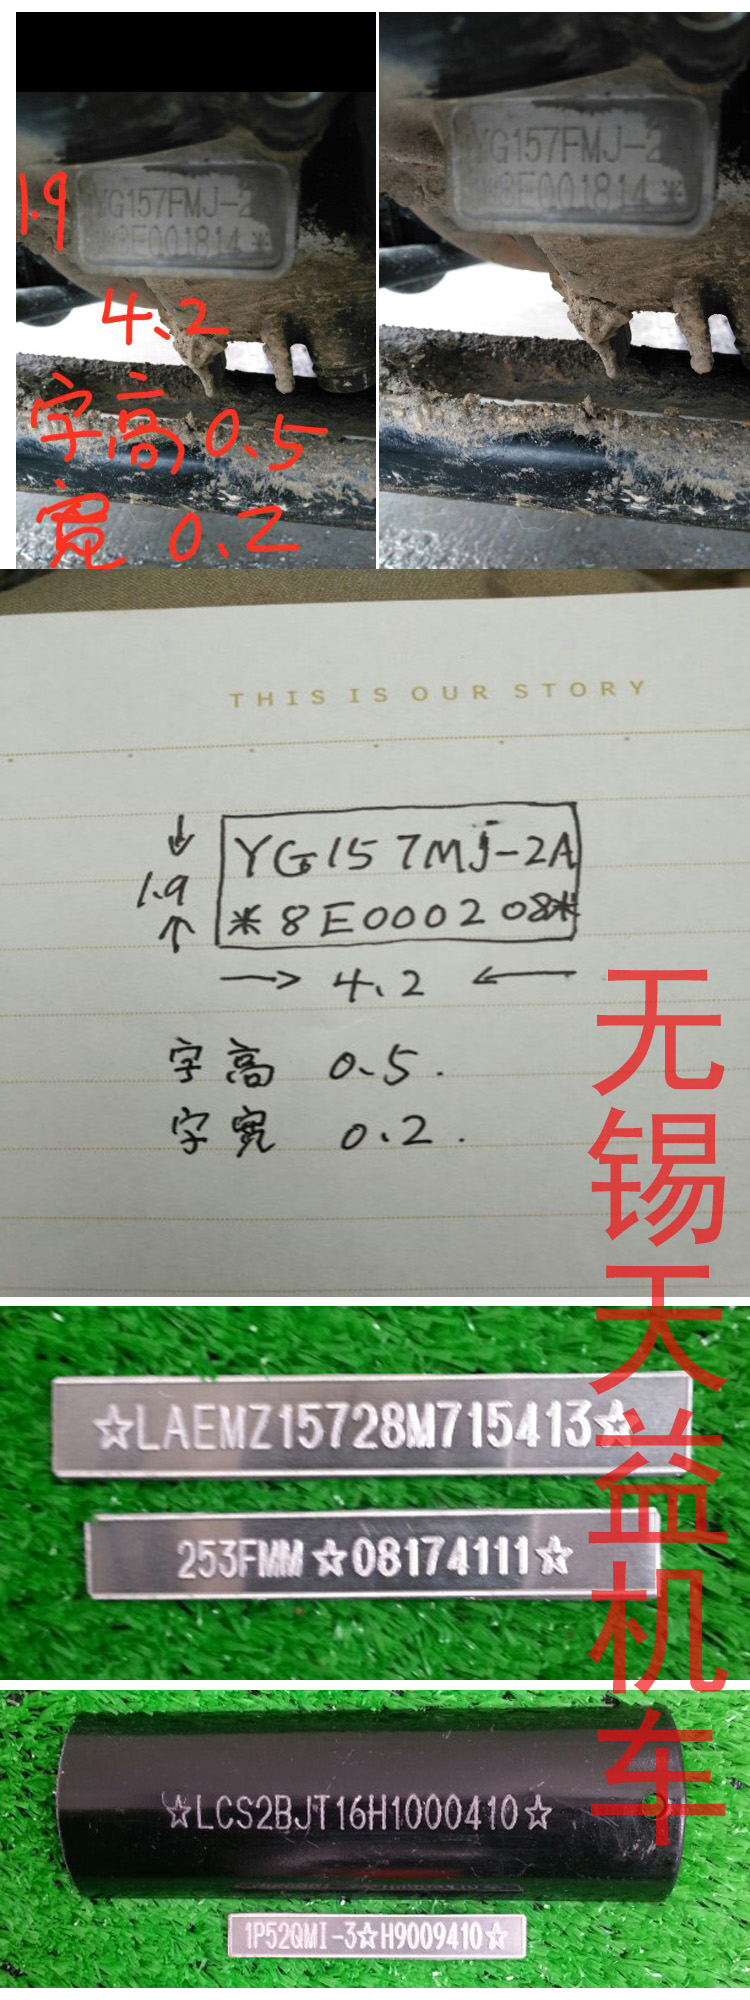 YG157FMJ-2
8E001814*
1.9
4.2
字高 0.5
宽 0.2
YG157FMJ-2
8E001814*
THIS IS OUR STORY
YG157MJ-2A
*8E000208*
1.9
4.2
字高 0.5.
字宽 0.2.
无锡天益机车
☆LAEMZ15728M715413☆
253FMM☆08174111☆
☆LCS2BJT16H1000410☆
1P52QMI-3☆H9009410☆